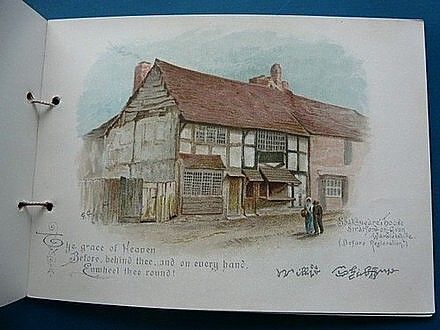 Shakspeare's house
Stratford-on-Avon
Warwickshire
(Before Restoration)
Ye grace of Heaven
Before, behind thee, and on every hand,
Enwheel thee round!